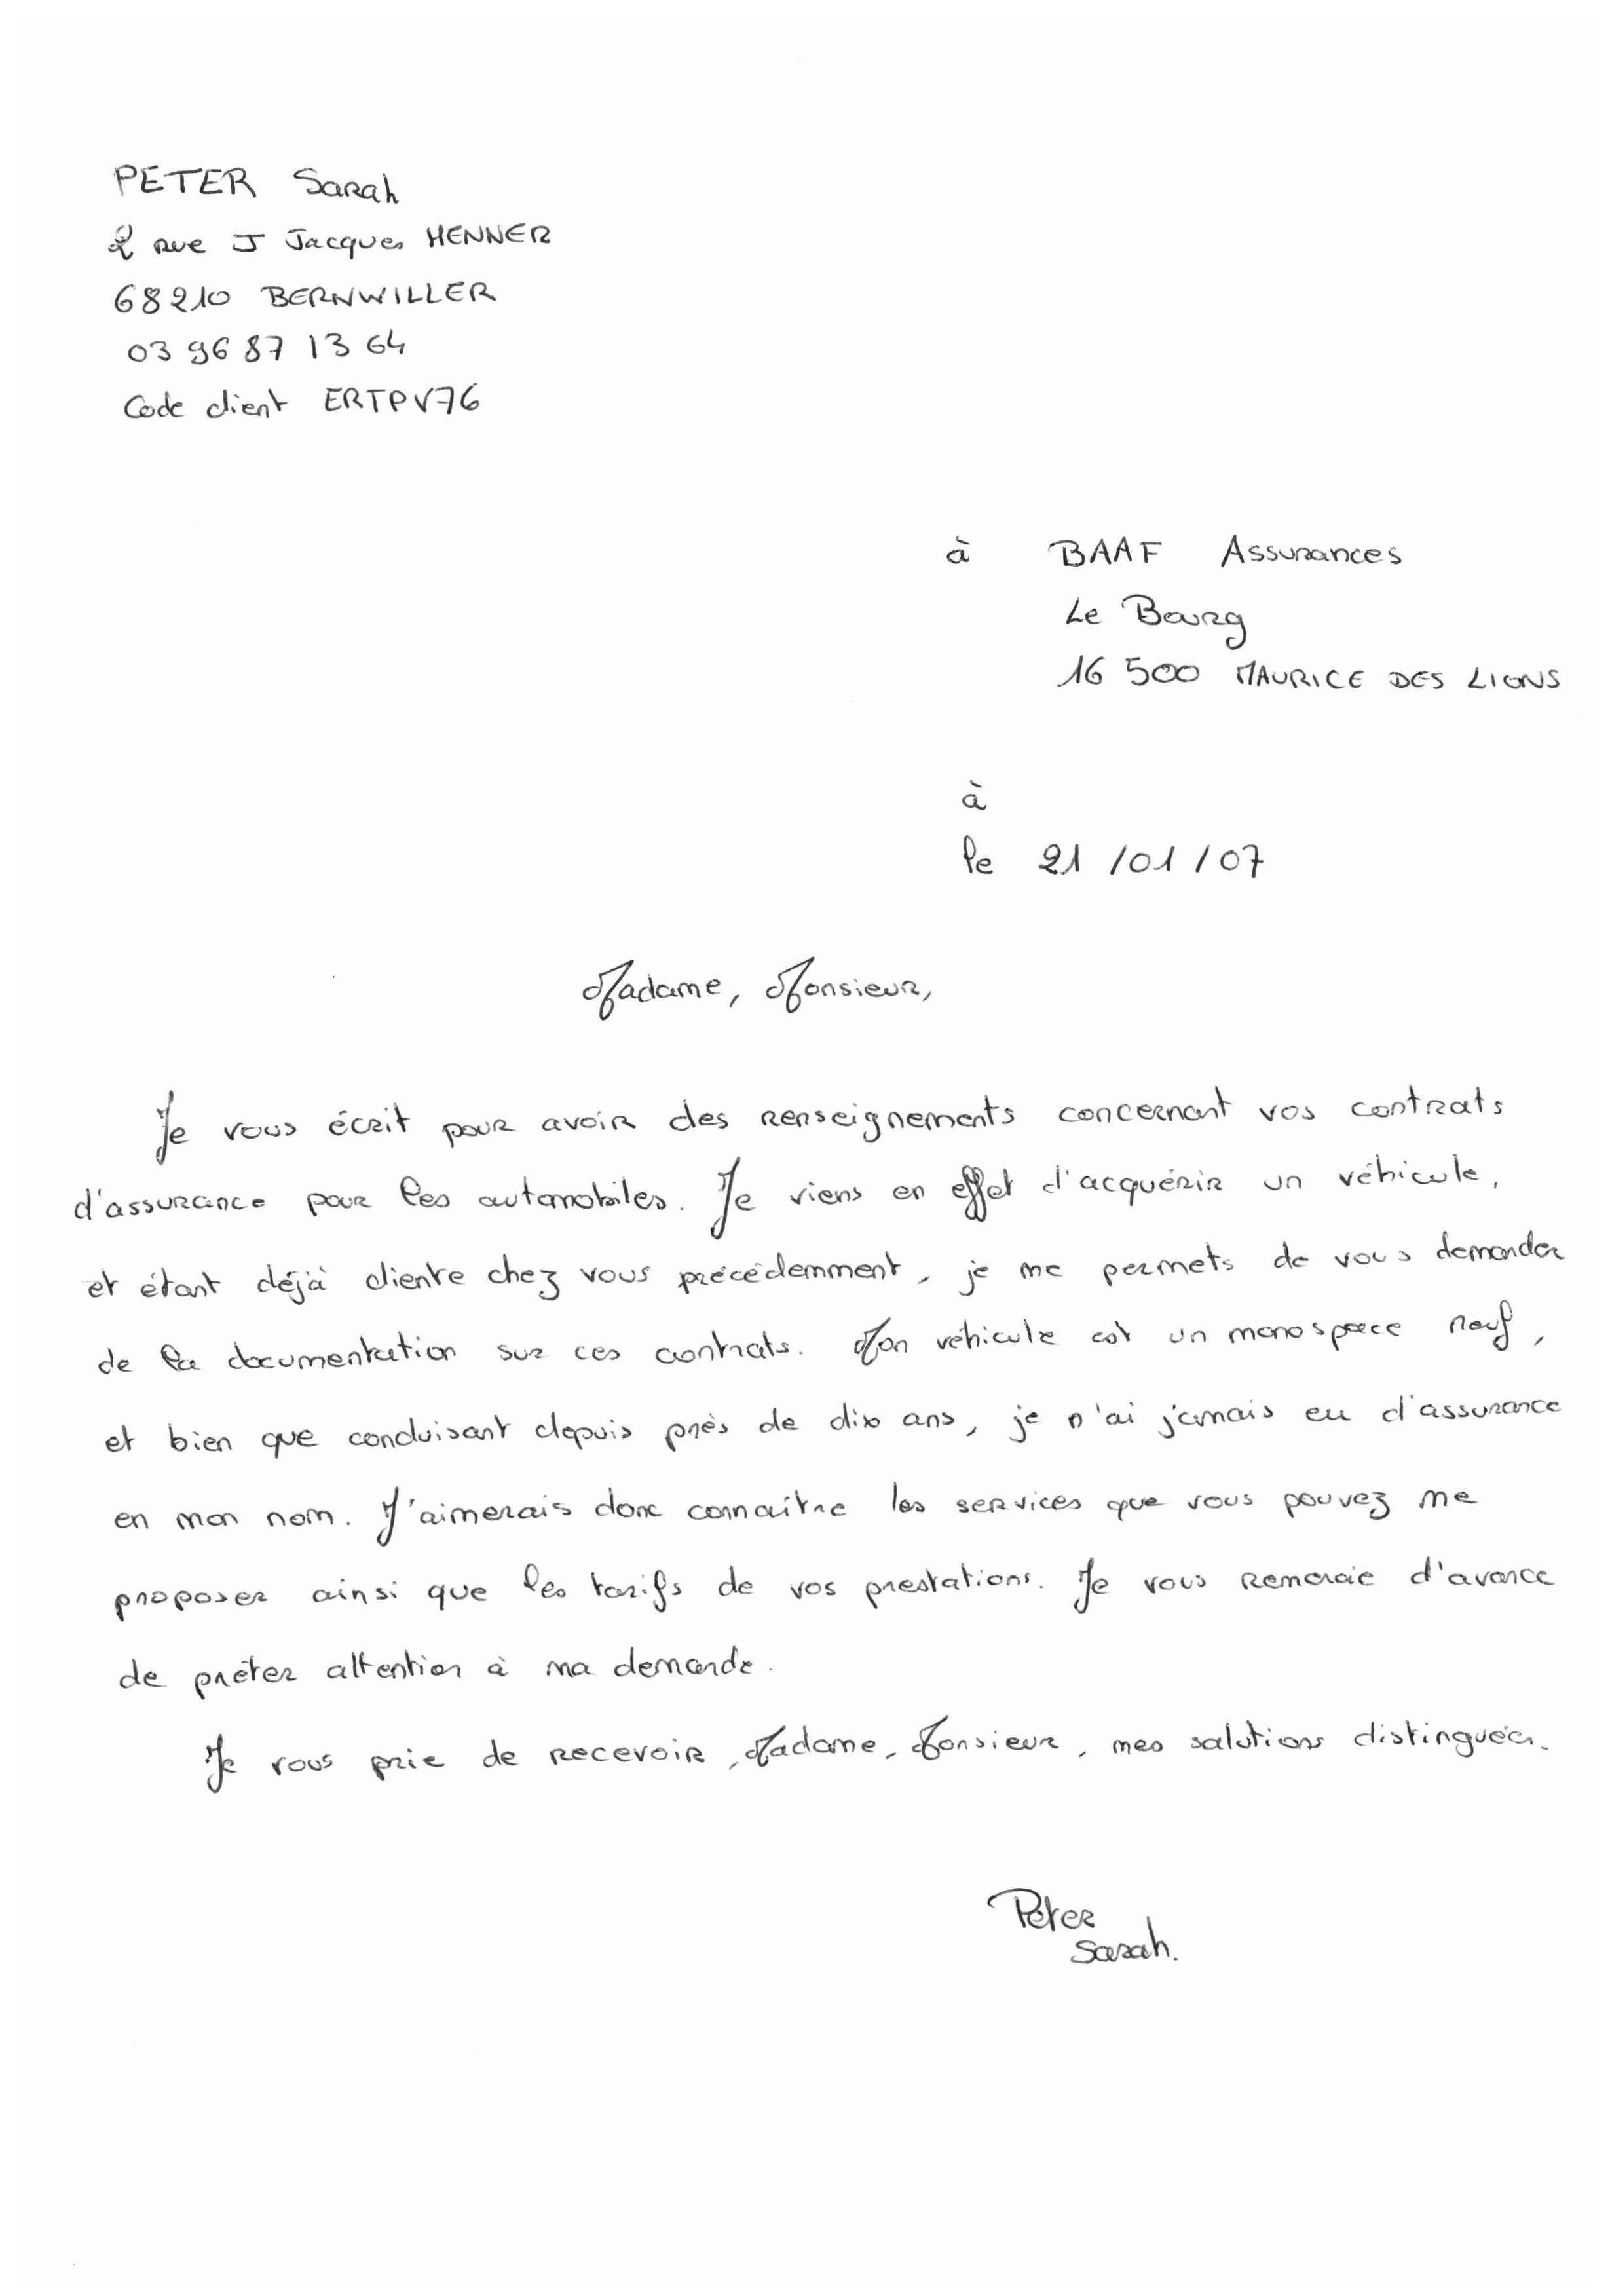 PETER Sarah
2 rue J Jacques HENNER
68210 BERNWILLER
03 96 87 13 64
Code client ERTPV76
à BAAF Assurances
Le Bourg
16 500 MAURICE DES LIONS
à
le 21 /01 / 07
Madame, Monsieur,
Je vous écrit pour avoir des renseignements concernant vos contrats
d'assurance pour les automobiles. Je viens en effet d'acquérir un véhicule,
et étant déjà cliente chez vous précédemment, je me permets de vous demander
de la documentation sur ces contrats. Mon véhicule est un monospace neuf,
et bien que conduisant depuis près de dix ans, je n'ai jamais eu d'assurance
en mon nom. J'aimerais donc connaître les services que vous pouvez me
proposer ainsi que les tarifs de vos prestations. Je vous remercie d'avance
de prêter attention à ma demande.
Je vous prie de recevoir, Madame, Monsieur, mes salutions distinguées.
Peter
Sarah.